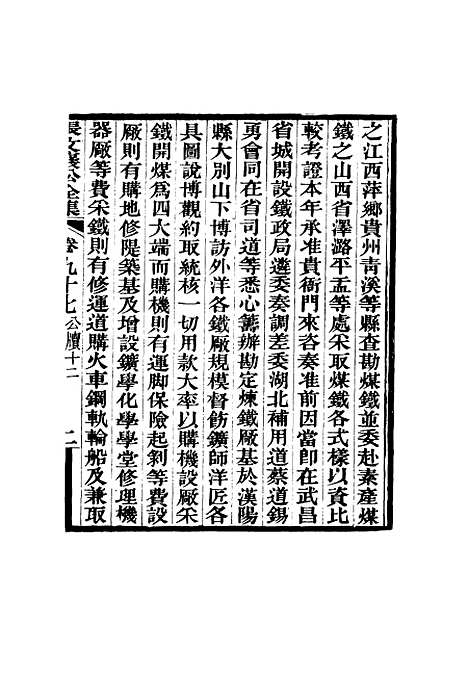 之江西萍鄉貴州靑溪等縣查勘煤鐵並委赴秦產煤
鐵之山西省澤潞平盂等處采取煤鐵各式樣以資比
較考證本年承准貴衙門來咨奏准前因當卽在武昌
省城開設鐵政局遴委奏調差委湖北補用道蔡道錫
勇會同在省司道等悉心籌辦勘定煉鐵廠基於漢陽
縣大別山下博訪外洋各鐵廠規模督飭鑛師洋匠各
具圖說博觀約取統核一切用款大率以購機設廠采
鐵開煤爲四大端而購機則有運脚保險起剝等費設
廠則有購地修隄築基及增設鑛學化學學堂修理機
器廠等費采鐵則有修運道購火車鋼軌輪船及兼取
張文襄公全集 卷九十七 公牘十二 二